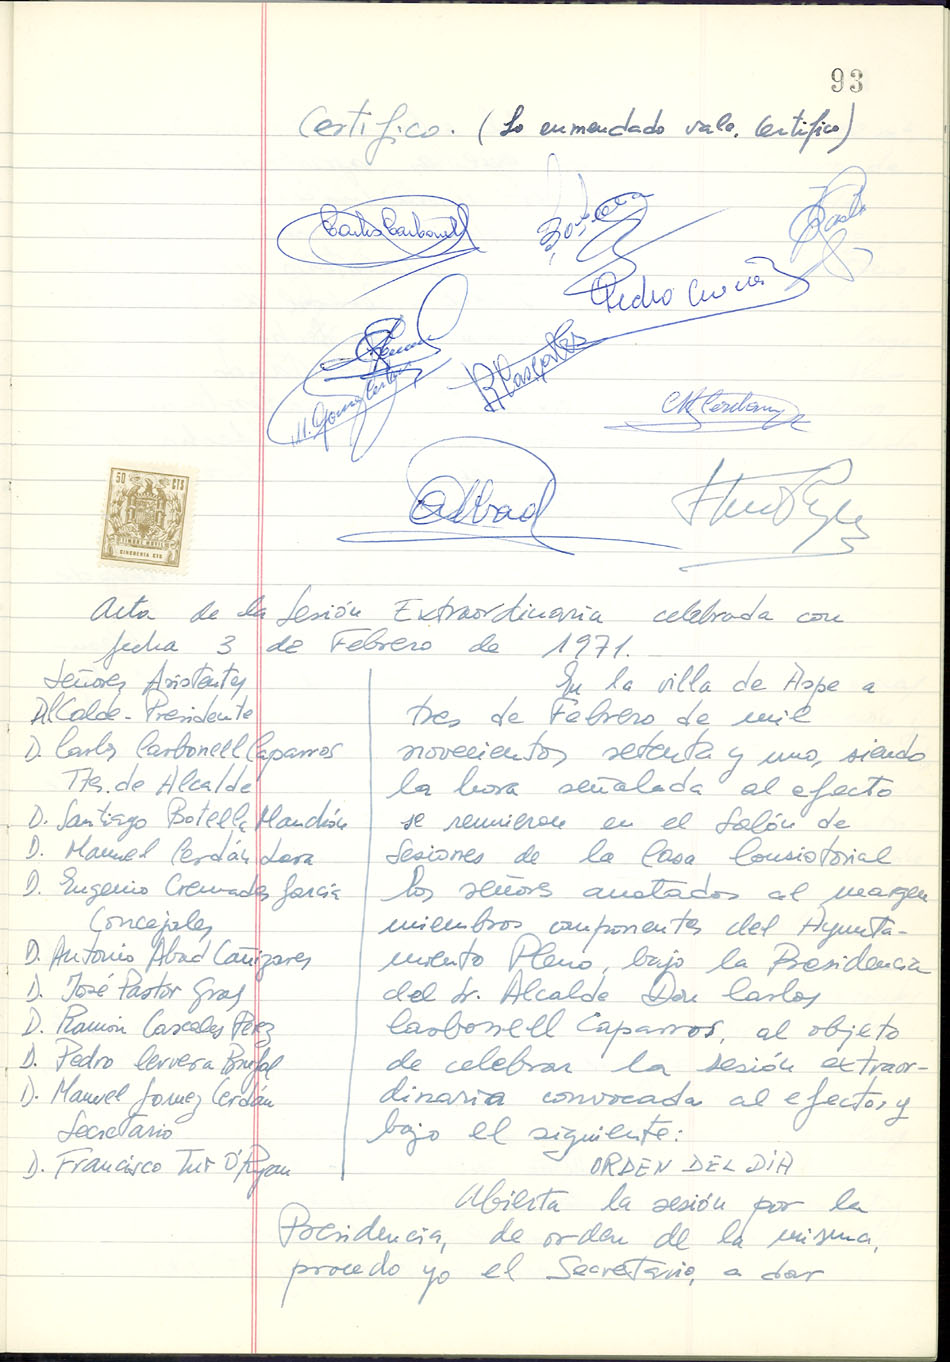 93
Certifico. (Lo enmendado vale. Certifico)
Carlos Carbonell
Pedro
M. Gomez Cerdán
R Cascales
M Cerdan
A Abad
50 CTS
TIMBRE MOVIL
CINCUENTA CTS
Acta de la Sesión Extraordinaria celebrada con
fecha 3 de Febrero de 1971.
Señores Asistentes
Alcalde-Presidente
D. Carlos Carbonell Caparros
Ttes. de Alcalde
D. Santiago Botella Manchón
D. Manuel Cerdán Lara
D. Eugenio Cremades Garcia
Concejales
D. Antonio Abad Cañizares
D. José Pastor Gras
D. Ramón Cascales Pérez
D. Pedro Cervera
D. Manuel Gomez Cerdán
Secretario
D. Francisco Tur O'Ryan
En la villa de Aspe a
tres de Febrero de mil
novecientos setenta y uno, siendo
la hora señalada al efecto
se reunieron en el Salón de
Sesiones de la Casa Consistorial
los señores anotados al margen
miembros componentes del Ayunta-
miento Pleno, bajo la Presidencia
del Sr. Alcalde Don Carlos
Carbonell Caparros, al objeto
de celebrar la sesión extraor-
dinaria convocada al efecto y
bajo el siguiente:
ORDEN DEL DIA
Abierta la sesión por la
Presidencia, de orden de la misma,
procedo yo el Secretario, a dar